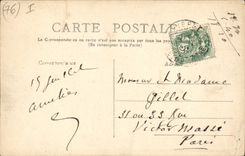 (76) I
CARTE POSTALE
La Correspondance au recto n'est pas acceptée par tous les pays étrangers
(Se renseigner à la Poste)
CORRESPONDANCE
15 Juillet
Amitiés
Monsieur et Madame
Gillet
31 ou 33 Rue
Victor Massé
Paris